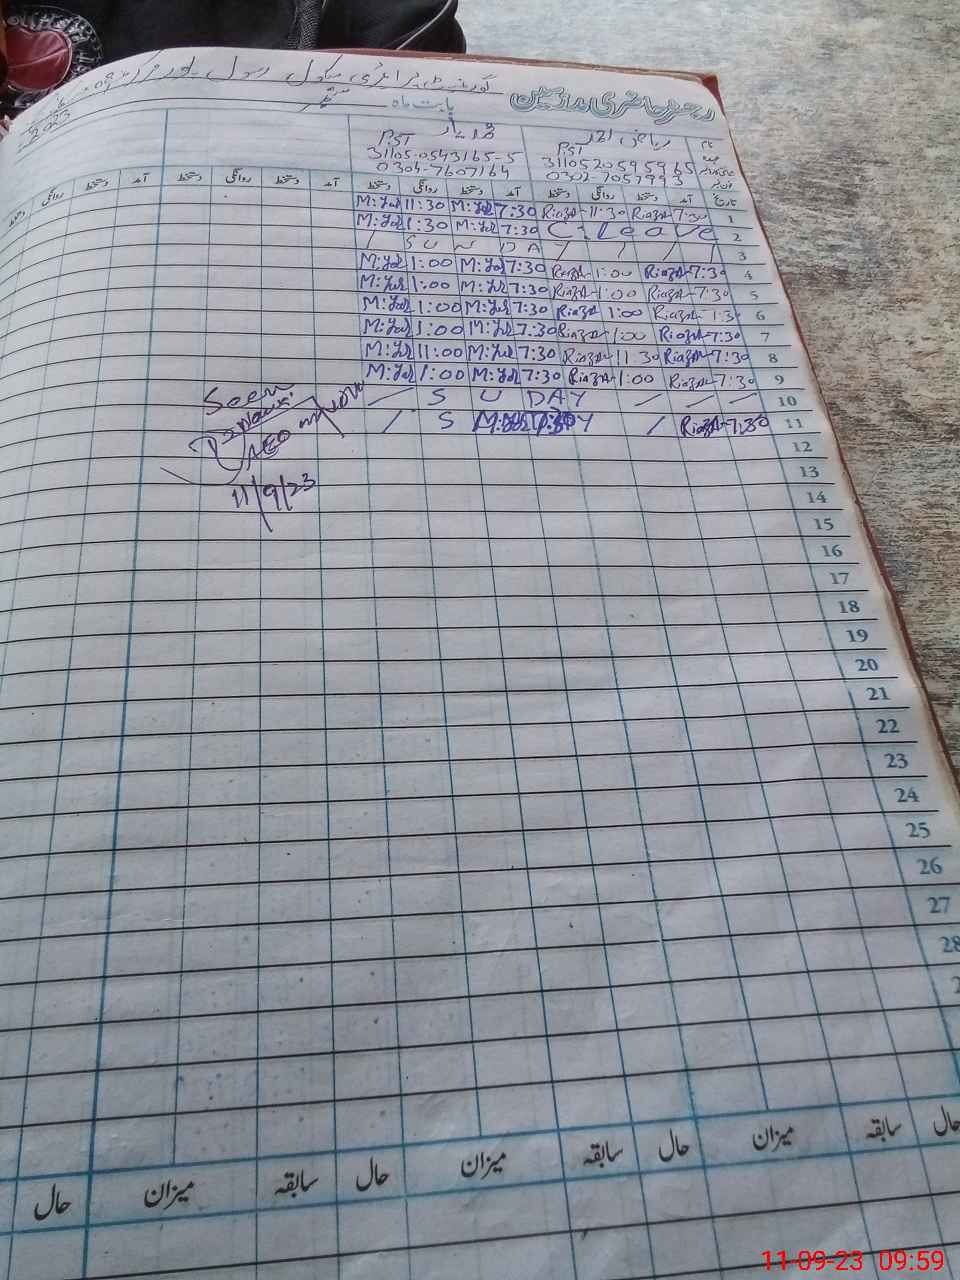 گورنمنٹ پرائمری سکول رسول پور مرکز
2023
رجسٹر حاضری مدرسین
بابت ماہ ستمبر
نام ریاض احمد
PST PST
31105-0543165-5 3110520595965
0304-7607164 0302-7057993
دستخط روانگی دستخط آمد دستخط روانگی دستخط آمد دستخط روانگی دستخط آمد تاریخ
11:30 7:30 Riaz A 11:30 Riaz A 7:30 1
1:30 7:30 C-leave 2
/ S U N D A Y / / / 3
1:00 7:30 Riaz A 1:00 Riaz A 7:30 4
1:00 7:30 Riaz A 1:00 Riaz A 7:30 5
1:00 7:30 Riaz A 1:00 Riaz A 6
1:00 7:30 Riaz A 1:00 Riaz A 7:30 7
11:00 7:30 Riaz A 11:30 Riaz A 7:30 8
1:00 7:30 Riaz A 1:00 Riaz A 7:30 9
— S U DAY / — — 10
/ S Y / Riaz A 7:30 11
Seen
AEO
11/9/23
12
13
14
15
16
17
18
19
20
21
22
23
24
25
26
27
28
حال سابقہ میزان حال سابقہ میزان حال سابقہ میزان حال
11-09-23 09:59